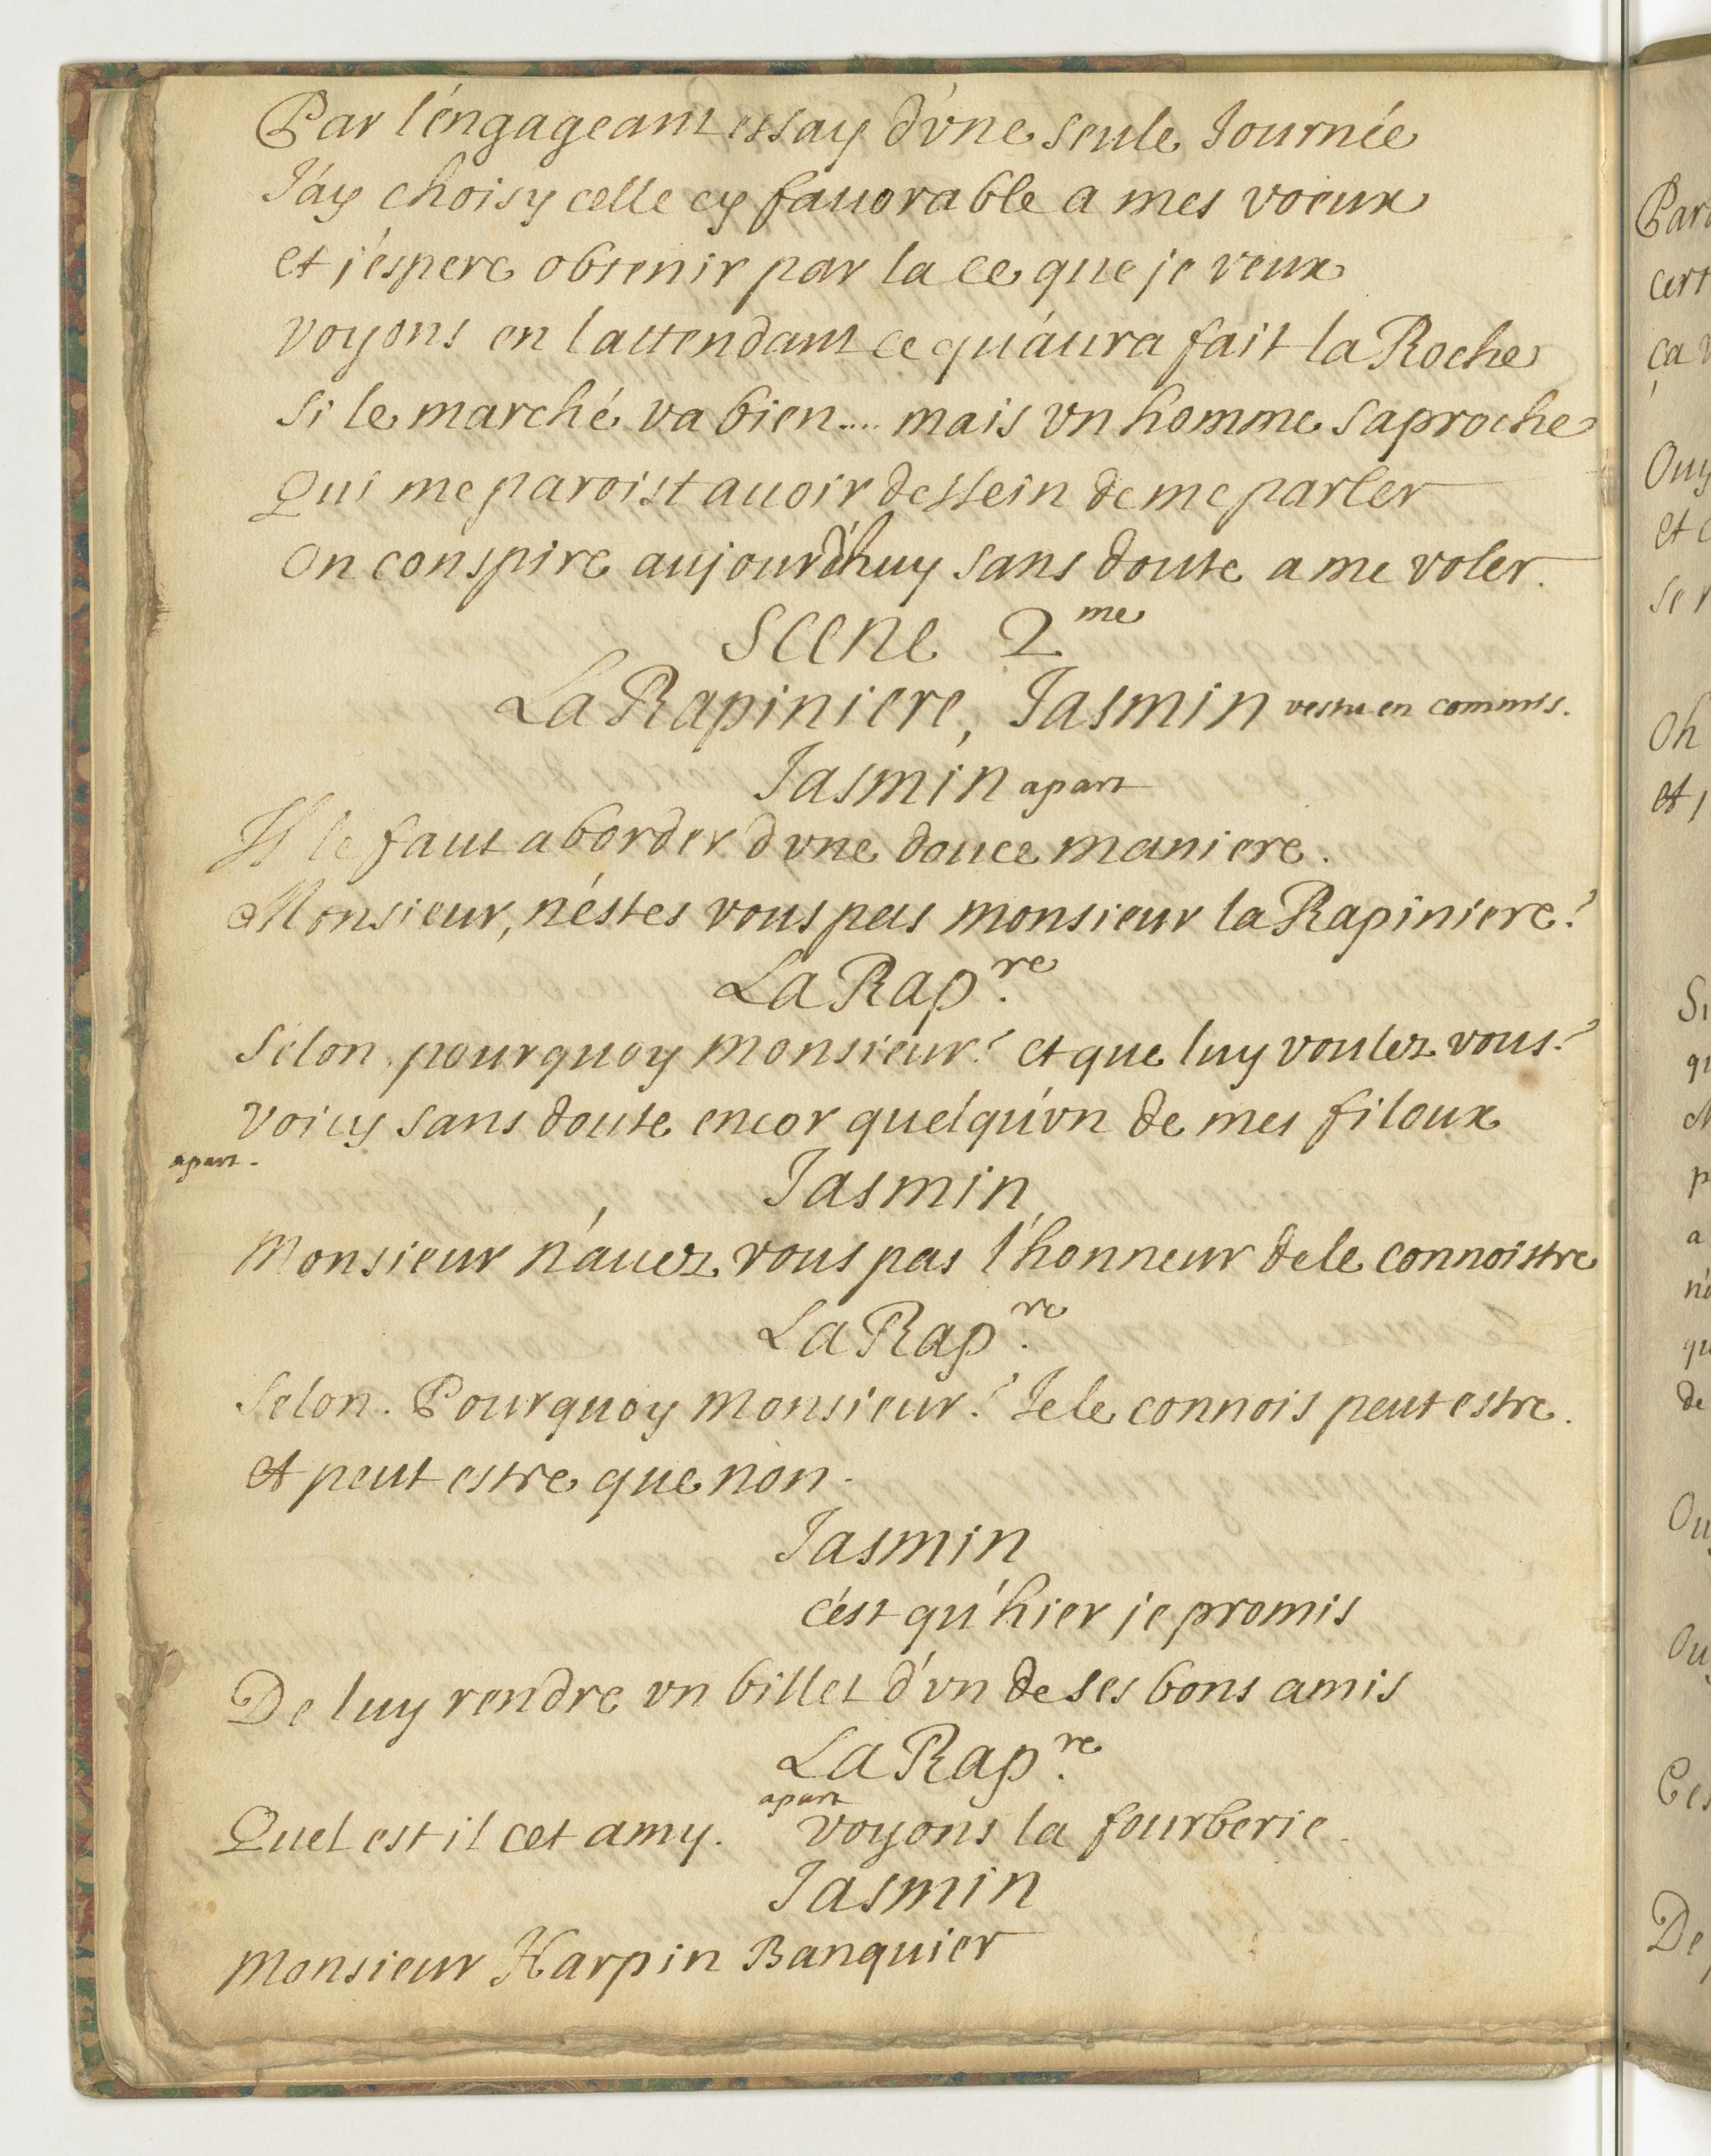 Par l'éngageant essay d'vne seule Journée
J'ay choisy celle cy fauorable a mes voeux
et j'éspere obtenir par la ce que je veux
voyons en lattendant ce qu'aura fait la Roche
Si le marché va bien.... mais vn homme saproche
Qui me paroist auoir dessein de me parler
On conspire aujourd'huy sans doute a me voler.
Scene 2me
La Rapiniere, Jasmin vestu en commis.
Jasmin apart
Il le faut aborder dvne douce maniere.
Monsieur, n'éstes vous pas monsieur la Rapiniere?
La Rap.re
Selon. pourquoy monsieur? et que luy voulez vous?
Voicy sans doute encor quelqu'vn de mes filoux
apart.
Jasmin
Monsieur n'auez vous pas l'honneur de le connoistre
La Rap.re
Selon. Pourquoy monsieur? Je le connois peut estre.
et peut estre que non.
Jasmin
c'est qu'hier je promis
De luy rendre vn billet d'vn de ses bons amis
La Rap.re
apart
Quel est il cet amy. voyons la fourberie.
Jasmin
Monsieur Harpin Banquier
Par
cert
ça v
Ouy
et c
se r
Oh
et
Si
qu
p
a
qu
de
Ou
Ouy
Ces
De